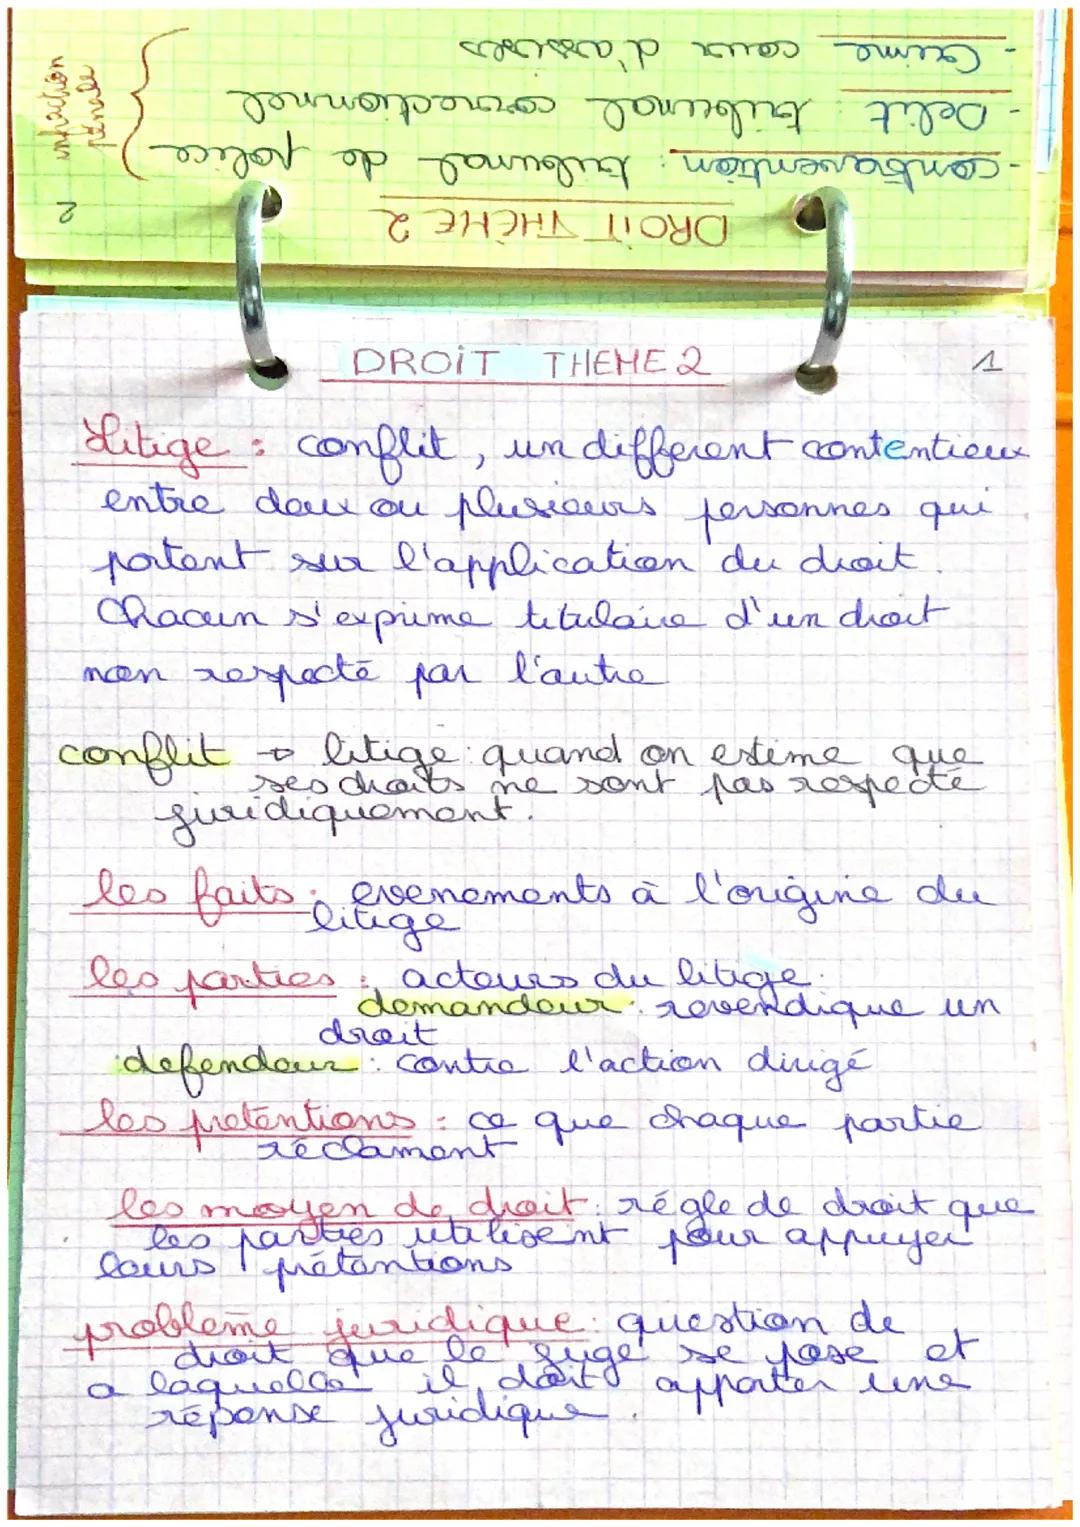 - Crime cour d'assises
- Delit : tribunal correctionnel
- contravention : tribunal de police
infraction
pénale
DROIT THÈME 2
2
DROIT THEME 2
1
Litige : conflit, un different contentieux
entre deux ou plusieurs personnes qui
portent sur l'application du droit.
Chacun s'exprime titulaire d'un droit
non respecté par l'autre
conflit → litige : quand on estime que
ses droits ne sont pas respecté
juridiquement.
les faits : evenements à l'origine du
litige
les parties : acteurs du litige :
demandeur : revendique un
droit
defendeur : contre l'action dirigé
les pretentions : ce que chaque partie
réclament
les moyen de droit : régle de droit que
les parties utilisent pour appuyer
leurs prétentions
probleme juridique : question de
droit que le juge se pose et
a laquelle il doit apporter une
réponse juridique.